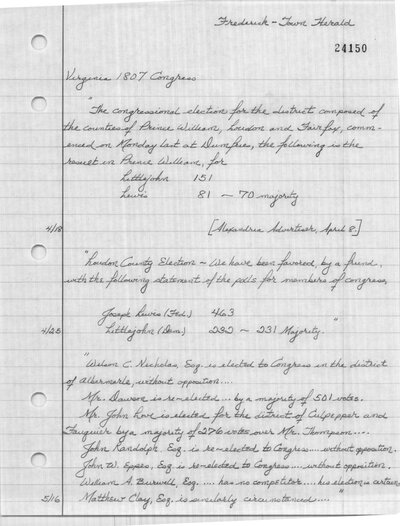 Frederick-Town Herald
24150
Virginia 1807 Congress
"The congressional election for the district composed of
the counties of Prince William, Loudon and Fairfax, comm-
enced on Monday last at Dumfries, the following is the
result in Prince William, for
Littlejohn 151
Lewis 81 — 70 majority
4/18 [Alexandria Advertiser, April 8]
"Loudon County Election — We have been favored, by a friend,
with the following statement of the polls for members of congress,
Joseph Lewis (Fed) 463
4/25 Littlejohn (Dem) 232 — 231 Majority."
"Wilson C. Nicholas, Esq. is elected to Congress in the district
of Albermarle, without opposition....
Mr. Dawson is re-elected ... by a majority of 501 votes.
Mr. John Love is elected for the district of Culpepper and
Fauquier by a majority of 276 votes over Mr. Thompson....
John Randolph Esq. is re-elected to Congress....without opposition.
John W. Eppes, Esq. is re-elected to Congress.... without opposition.
William A. Burwell, Esq. .... has no competitor.... his election is certain.
5/16 Matthew Clay, Esq. is similarly circumstanced ...."